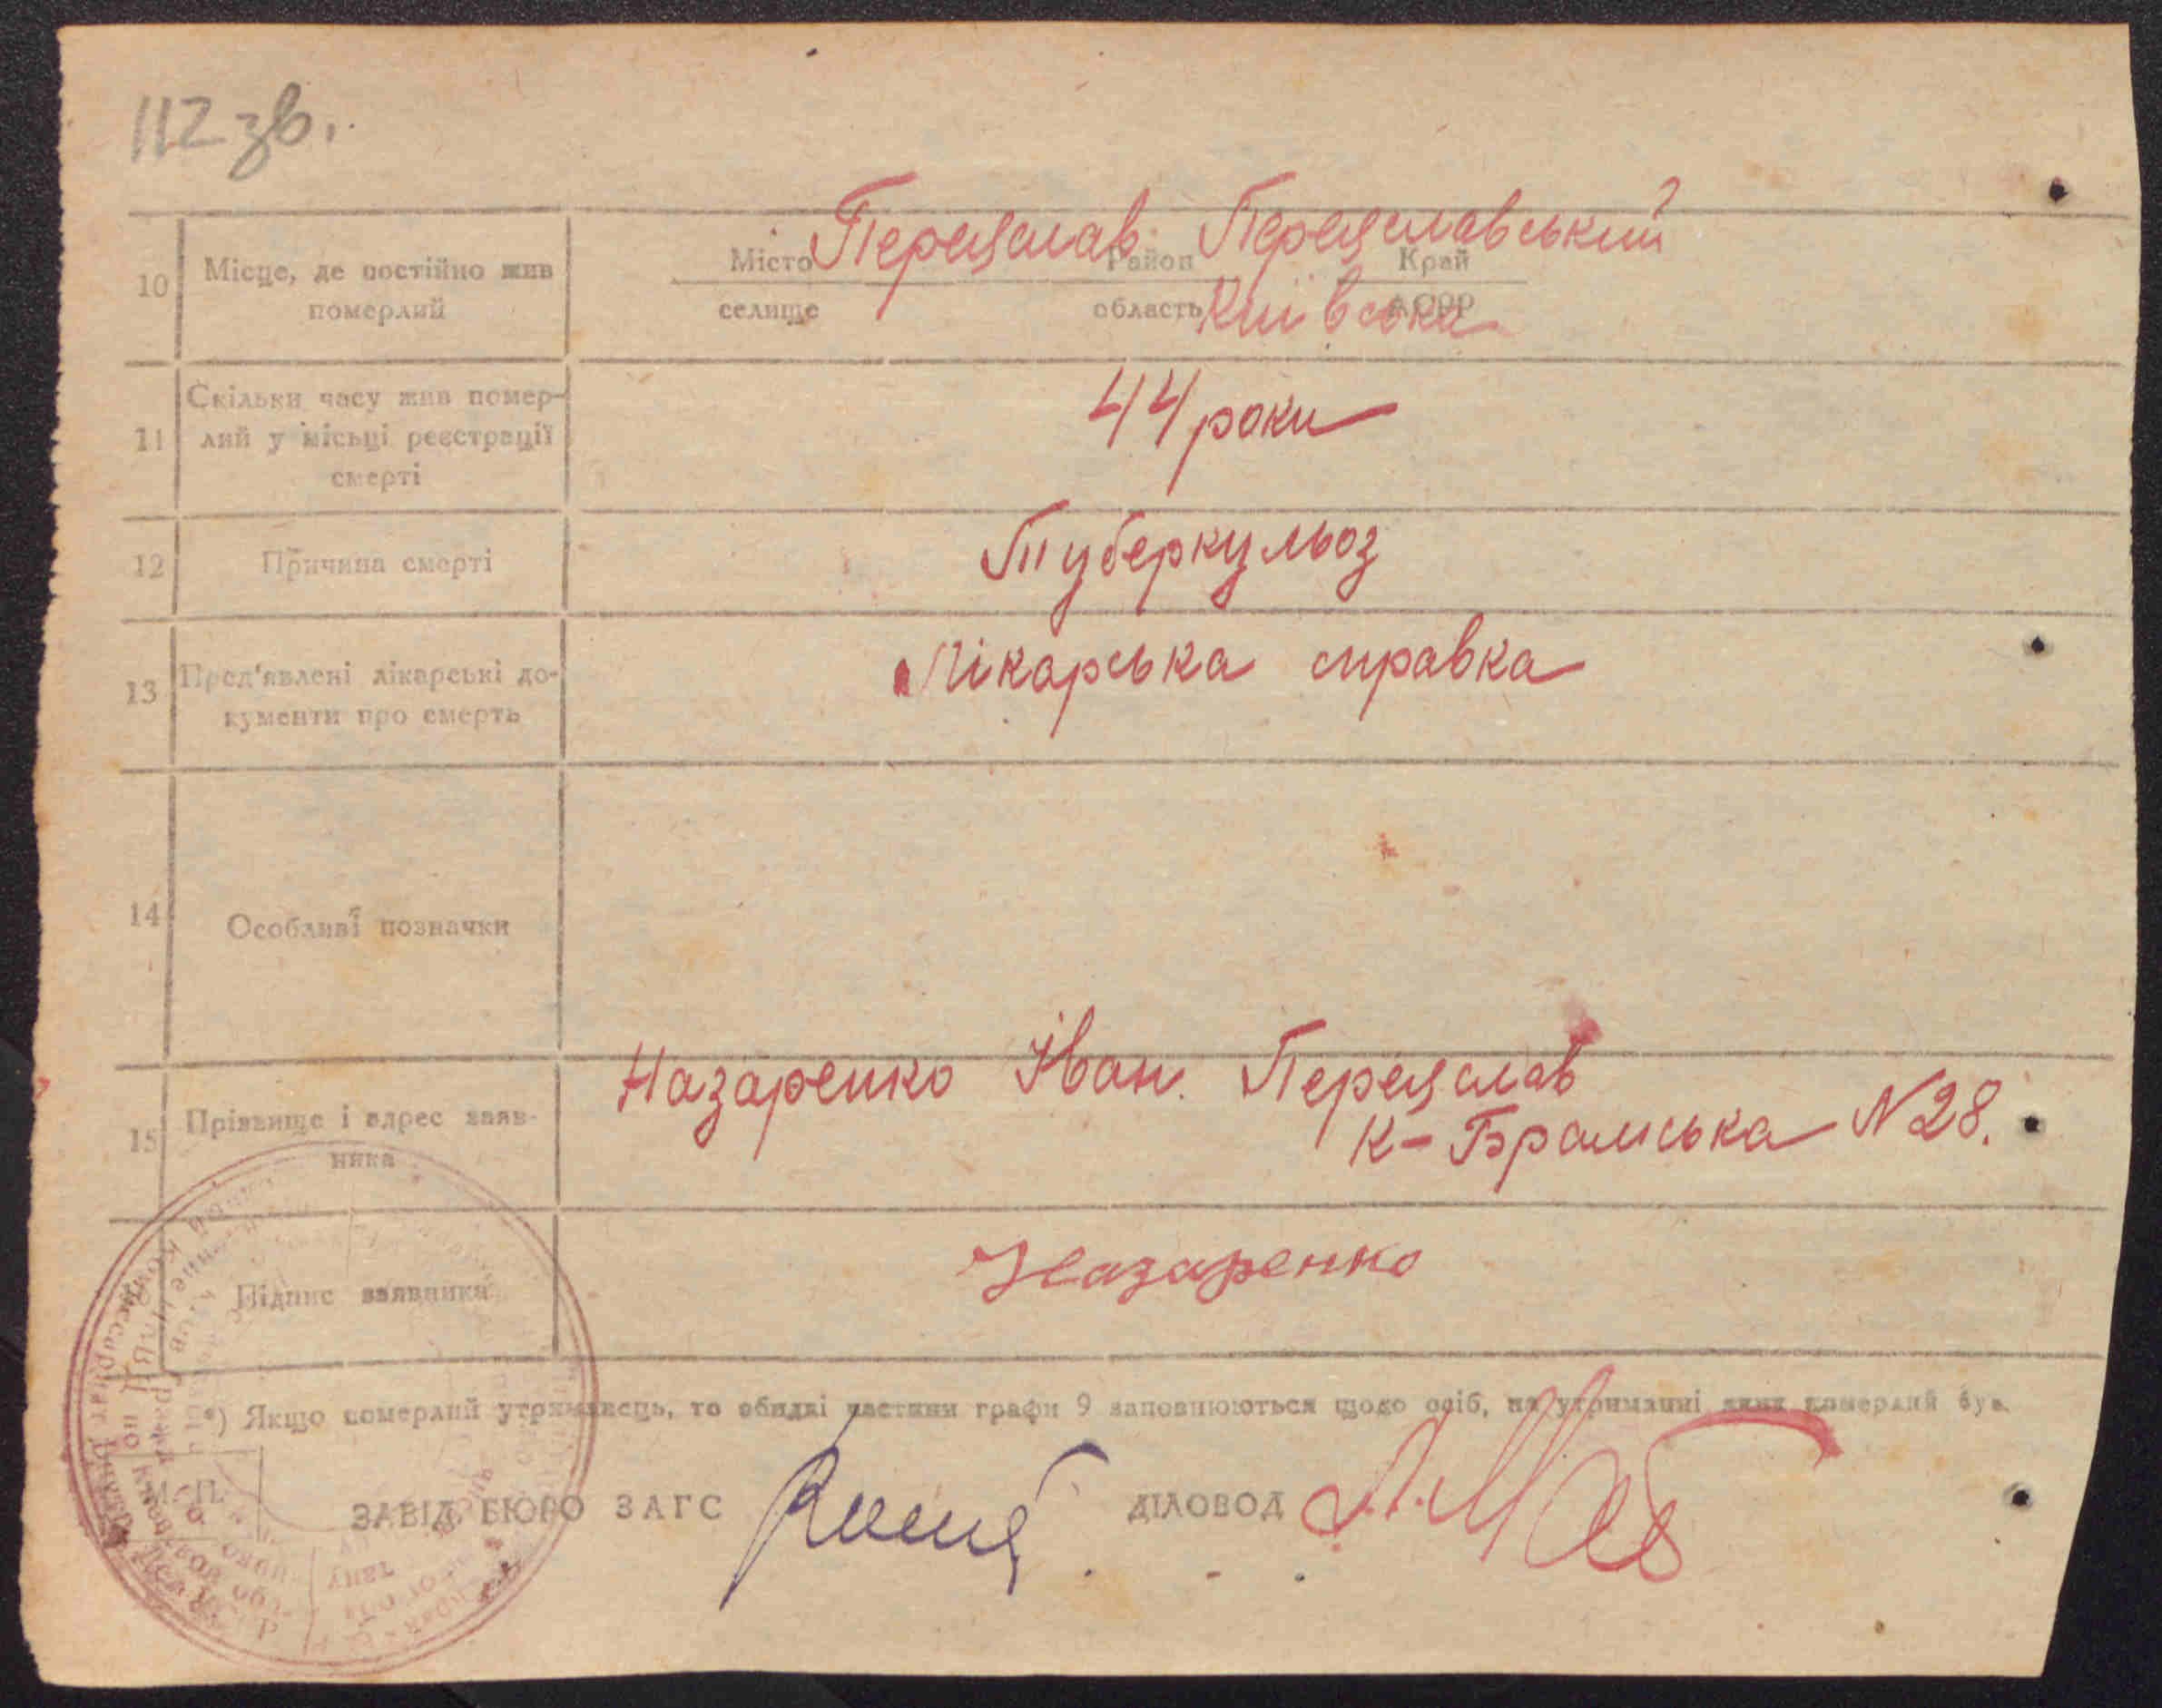 112 зв.
Переяслав Переяславський
10 Місце, де постійно жив
померлий
Місто Район Край
селище область АСРР
Київська
11 Скільки часу жив помер-
лий у місьці реєстрації
смерті
44 роки
12 Причина смерті
Туберкульоз
13 Пред'явлені лікарські до-
кументи про смерть
Лікарська справка
14 Особливі позначки
15 Прізвище і адрес заяв-
ника
Назаренко Іван. Переяслав
К-Брамська N 28.
Підпис заявника
Назаренко
*) Якщо померлий утриманець, то обидві частини графи 9 заповнюються щодо осіб, на утриманні яких померлий був.
М. П.
ЗАВІД. БЮРО ЗАГС ДІЛОВОД